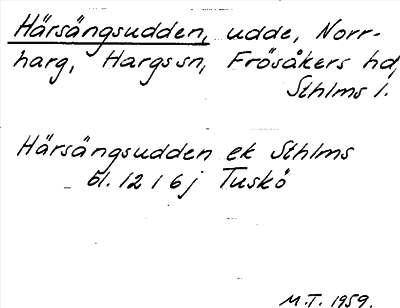 Härsängsudden, udde, Norr-
harg, Hargs sn, Frösåkers hd,
Sthlms l.
Härsängsudden ek Sthlms
bl. 12 I 6 j Tuskö
M.T. 1959.